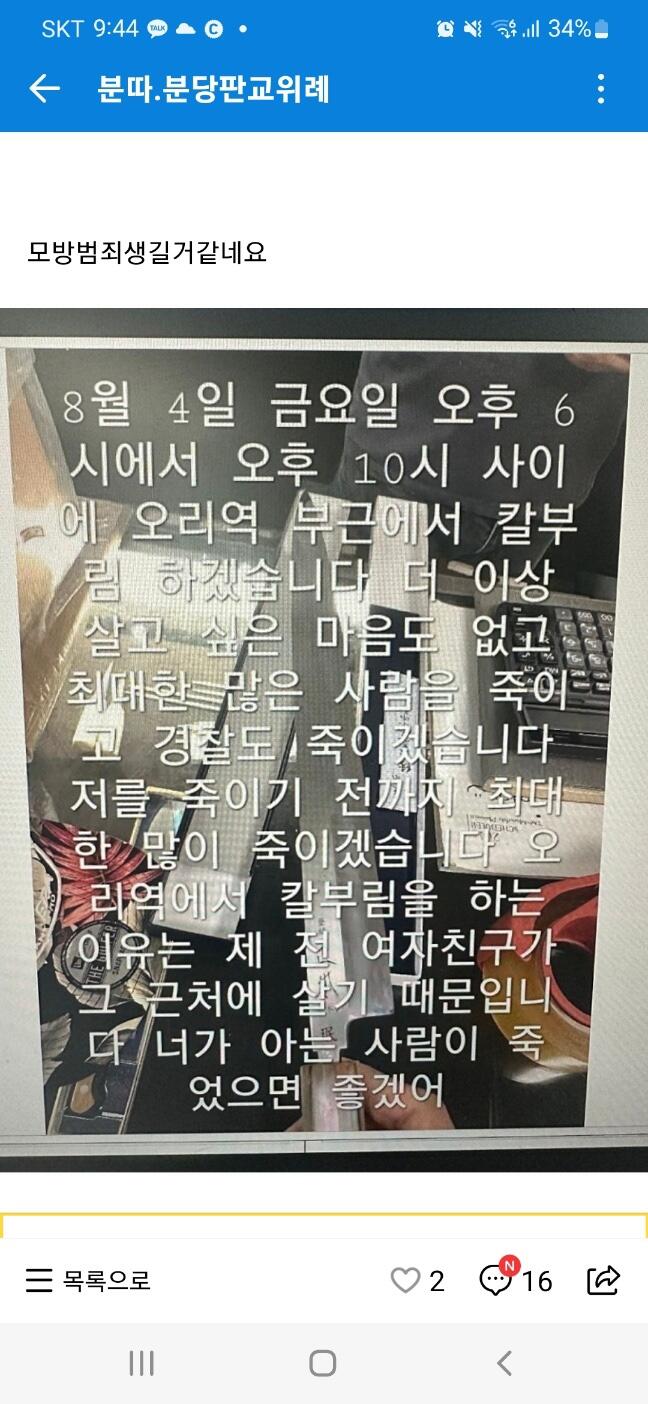 SKT 9:44 TALK C 34%
분따.분당판교위례
모방범죄생길거같네요
8월 4일 금요일 오후 6
시에서 오후 10시 사이
에 오리역 부근에서 칼부
림 하겠습니다 더 이상
살고 싶은 마음도 없고
최대한 많은 사람을 죽이
고 경찰도 죽이겠습니다
저를 죽이기 전까지 최대
한 많이 죽이겠습니다 오
리역에서 칼부림을 하는
이유는 제 전 여자친구가
그 근처에 살기 때문입니
다 너가 아는 사람이 죽
었으면 좋겠어
목록으로 2 N 16